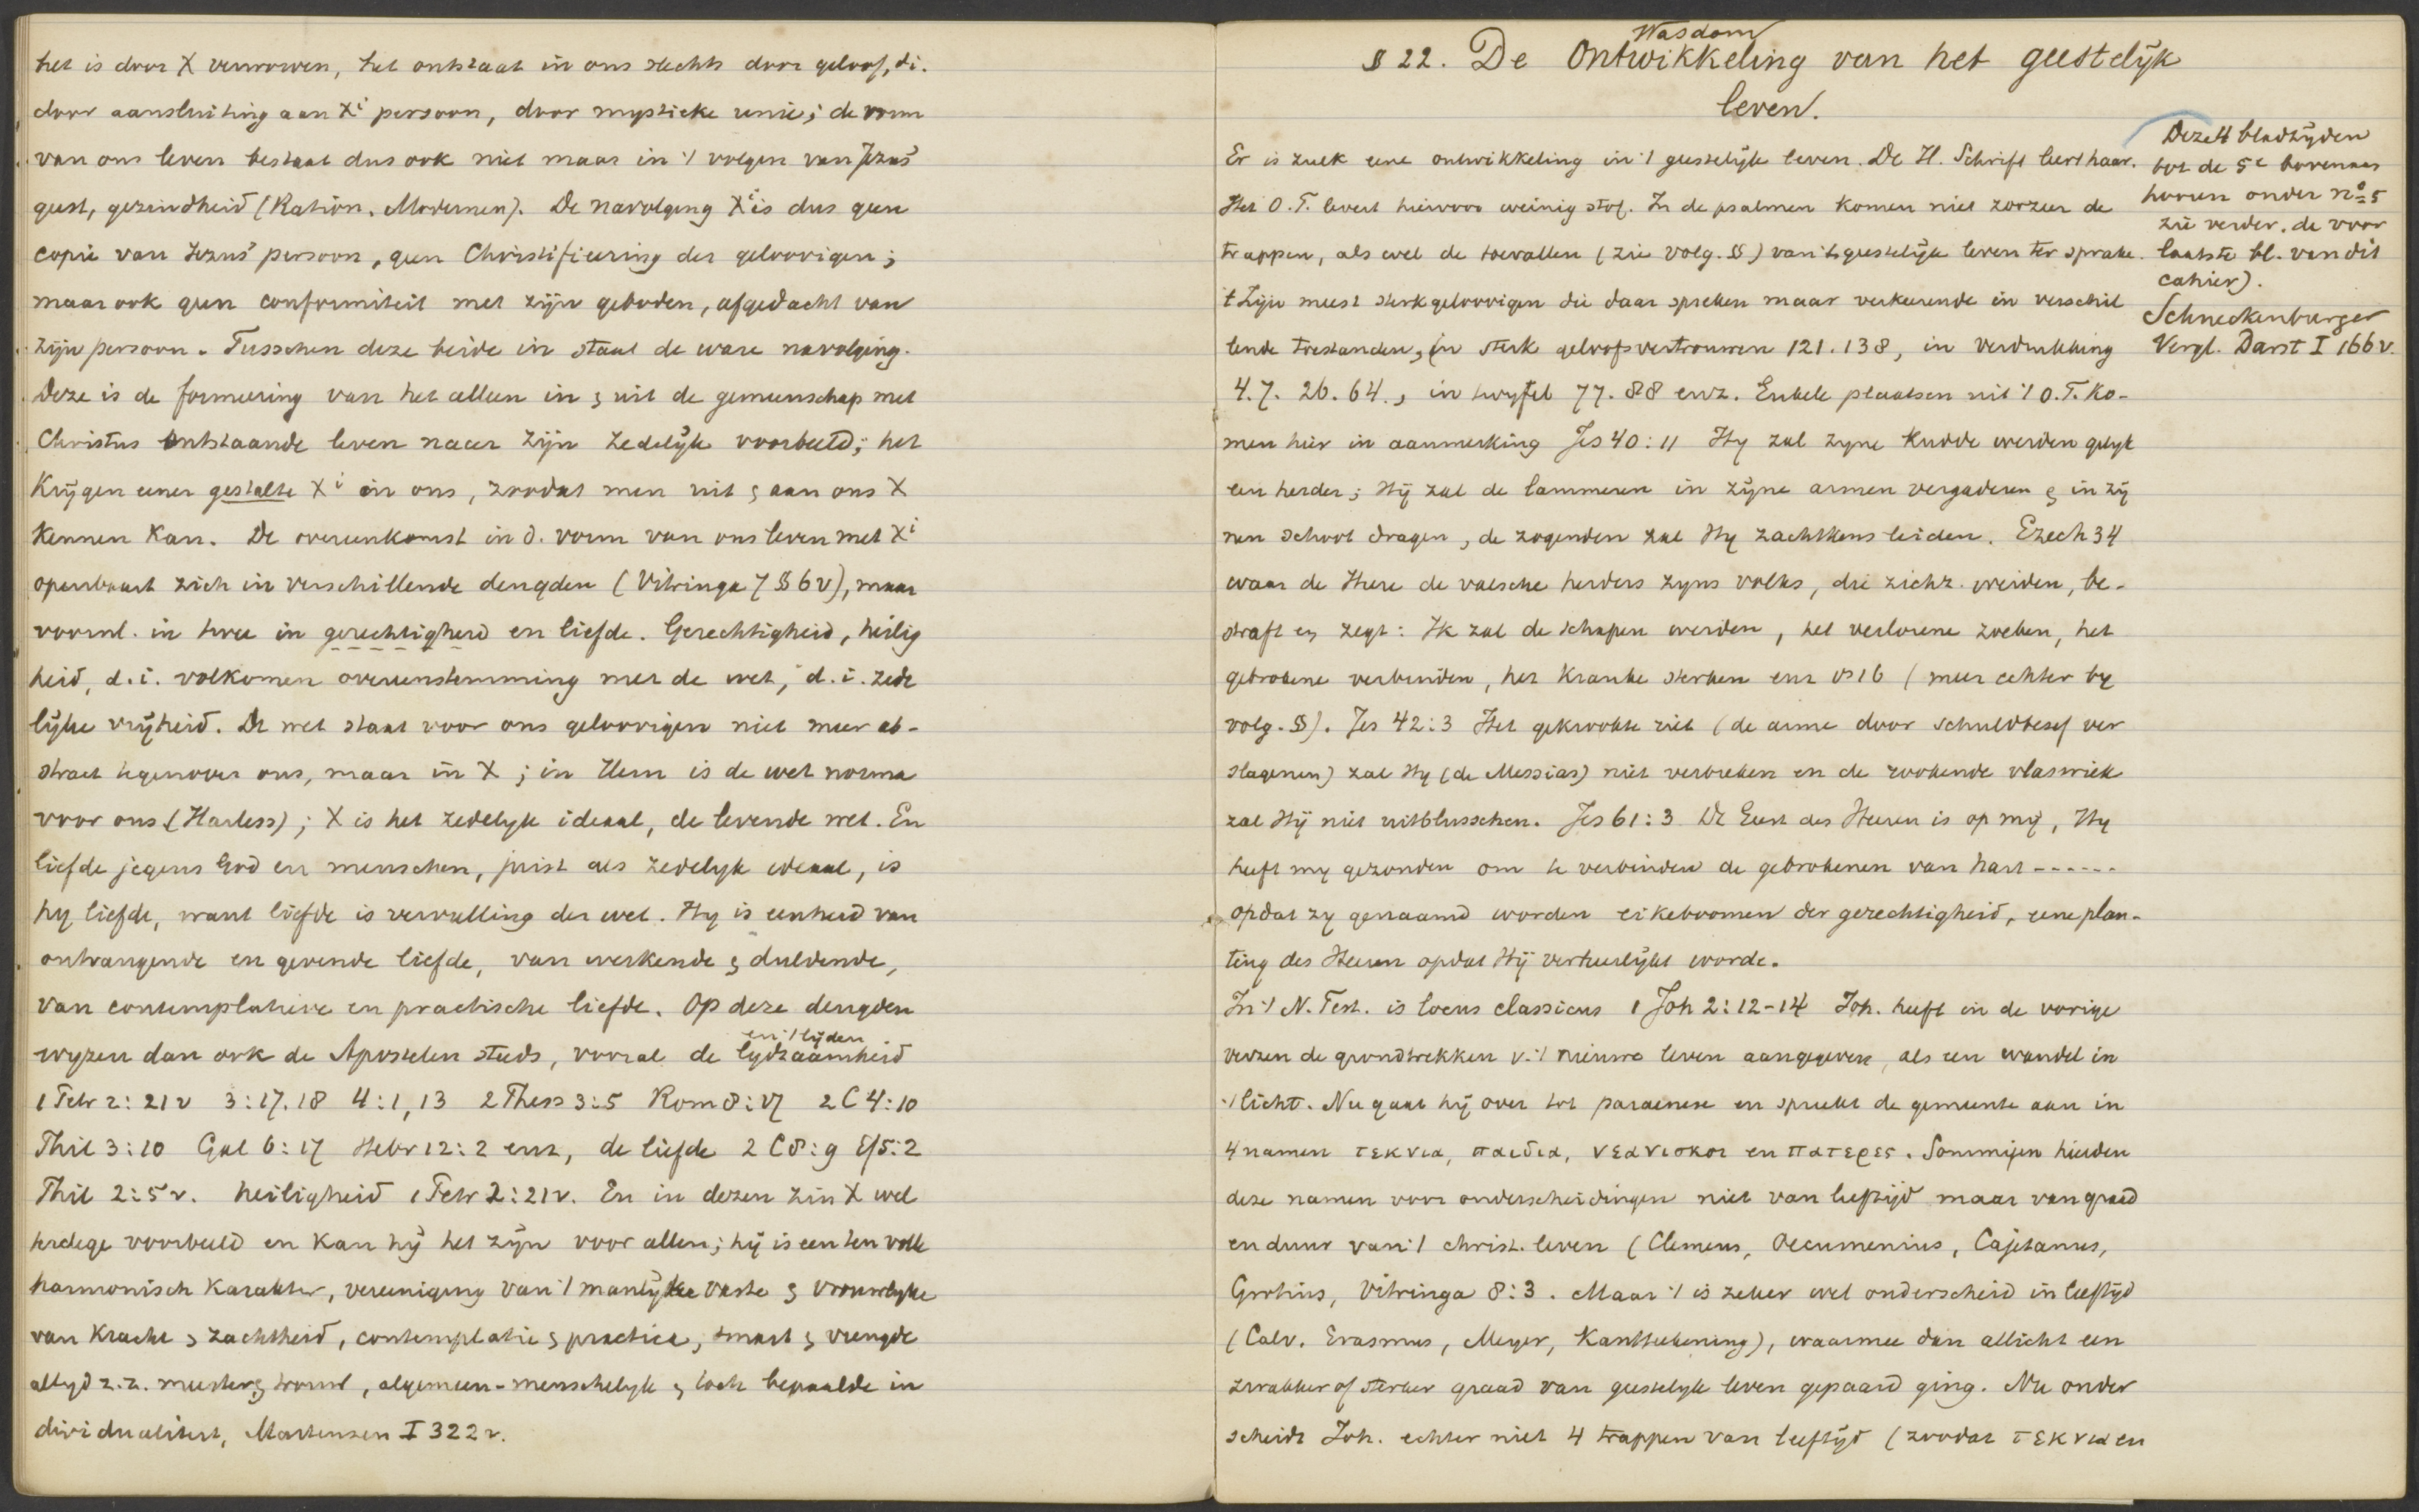 het is door X verworven, het ontstaat in ons slechts door geloof, d.i.
door aansluiting aan Xi persoon, door mystieke unie; de vorm
van ons leven bestaat dus ook niet maar in 't volgen van Jezus'
geest, gezindheid (Ration. Modernen). De navolging Xi is dus geen
copie van Jezus' persoon, geen Christificeering der geloovigen;
maar ook geen conformiteit met zijn geboden, afgedacht van
zijn persoon. Tusschen deze beide in staat de ware navolging.
Deze is de formeering van het alleen in & uit de gemeenschap met
Christus ontstaande leven naar zijn zedelijk voorbeeld; het
Krijgen eener gestalte Xi in ons, zoodat men uit & aan ons X
kennen kan. De overeenkomst in d. vorm van ons leven met Xi
openbaart zich in verschillende deugden (Vitringa 7 § 6v), maar
voorml. in twee in gerechtigheid en liefde. Gerechtigheid, heilig
heid, d.i. volkomen overeenstemming met de wet, d.i. zede
lijke vrijheid. De wet staat voor ons geloovigen niet meer ab-
stract tegenover ons, maar in X; in Hem is de wet norma
voor ons (Harless); X is het zedelijk ideaal, de levende wet. En
liefde jegens God en menschen, juist als zedelyk ideaal, is
hy liefde, want liefde is vervulling der wet. Hy is eenheid van
ontvangende en gevende liefde, van werkende & duldende,
van contemplatieve en practische liefde. Op deze deugden
wyzen dan ook de Apostelen steeds, vooral de lydzaamheid
en 't lijden
1 Petr 2:21v 3:17.18 4:1,13 2 Thess 3:5 Rom 8:17 2 C 4:10
Phil 3:10 Gal 6:17 Hebr 12:2 enz, de liefde 2 C 8:9 Ef 5:2
Phil 2:5v. heiligheid 1 Petr 2:21v. En in dezen zin X wel
terdege voorbeeld en kan hij het zijn voor allen; hij is een ten volle
harmonisch karakter, vereeniging van 't manlijke vaste & vrouwelyke
van kracht & zachtheid, contemplatie & practica, smart & vreugde
altyd z.z. meester & , algemeen-menschelyk & toch bepaalde in
dividualiteit, Martensen I 322v.
§ 22. De Ontwikkeling van het geestelijk
Wasdom
leven.
Er is zulk eene ontwikkeling in 't geestelijk leven. De H. Schrift leert haar.
Het O.T. levert hiervoor weinig stof. In de psalmen komen niet zoozeer de
trappen, als wel de toevallen (zie volg. §) van 't geestelijk leven ter sprake.
't Zijn meest sterkgeloovigen die daar spreken maar verkeerende in verschil
lende toestanden, in sterk geloofsvertrouwen 121.138, in verdrukking
4.7. 26.64., in twyfel 77.88 enz. Enkele plaatsen uit 't O.T. ko-
men hier in aanmerking Jes 40:11 Hy zal zyne kudde weiden gelyk
een herder; Hij zal de lammeren in zijne armen vergaderen & in zij
nen schoot dragen, de zogenden zal Hy zachtkens leiden. Ezech 34
waar de Heere de valsche herders zyns volks, die zichz. weiden, be-
straft en zegt: Ik zal de schapen weiden, het verlorene zoeken, het
gebrokene verbinden, het kranke sterken enz vs 16 (meer echter by
volg. §). Jes 42:3 Het gekrookte riet (de arme door schuldbesef ver
slagenen) zal Hy (de Messias) niet verbreken en de rookende vlaswiek
zal Hij niet uitblusschen. Jes 61:3 De Geest des Heeren is op mij, Hy
heeft my gezonden om te verbinden de gebrokenen van hart ------
opdat zy genaamd worden eikeboomen der gerechtigheid, eene plan-
ting des Heeren opdat Hij verheerlijkt worde.
In 't N. Test. is locus classicus 1 Joh 2:12-14 Joh. heeft in de vorige
verzen de grondtrekken v. 't nieuwe leven aangegeven, als een wandel in
't licht. Nu gaat hij over tot paraenese en spreekt de gemeente aan in
4 namen τεκνια, παιδια, νεανισκοι en πατερες. Sommigen hielden
deze namen voor onderscheidingen niet van leeftijd maar van graad
en duur van 't christ. leven (Clemens, Oecumenius, Cajetanus,
Grotius, Vitringa 8:3. Maar 't is zeker wel onderscheid in leeftijd
(Calv. Erasmus, Meyer, Kantteekening), waarmee dan allicht een
zwakker of sterker graad van geestelyk leven gepaard ging. Nu onder
scheidt Joh. echter niet 4 trappen van leeftijd (zoodat τεκνια en
Deze 4 bladzijden
tot de 5e bovenaan
hooren onder no 5
zie verder. de voor
laatste bl. van dit
cahier).
Schneckenburger
Vergl. Darst I 166v.